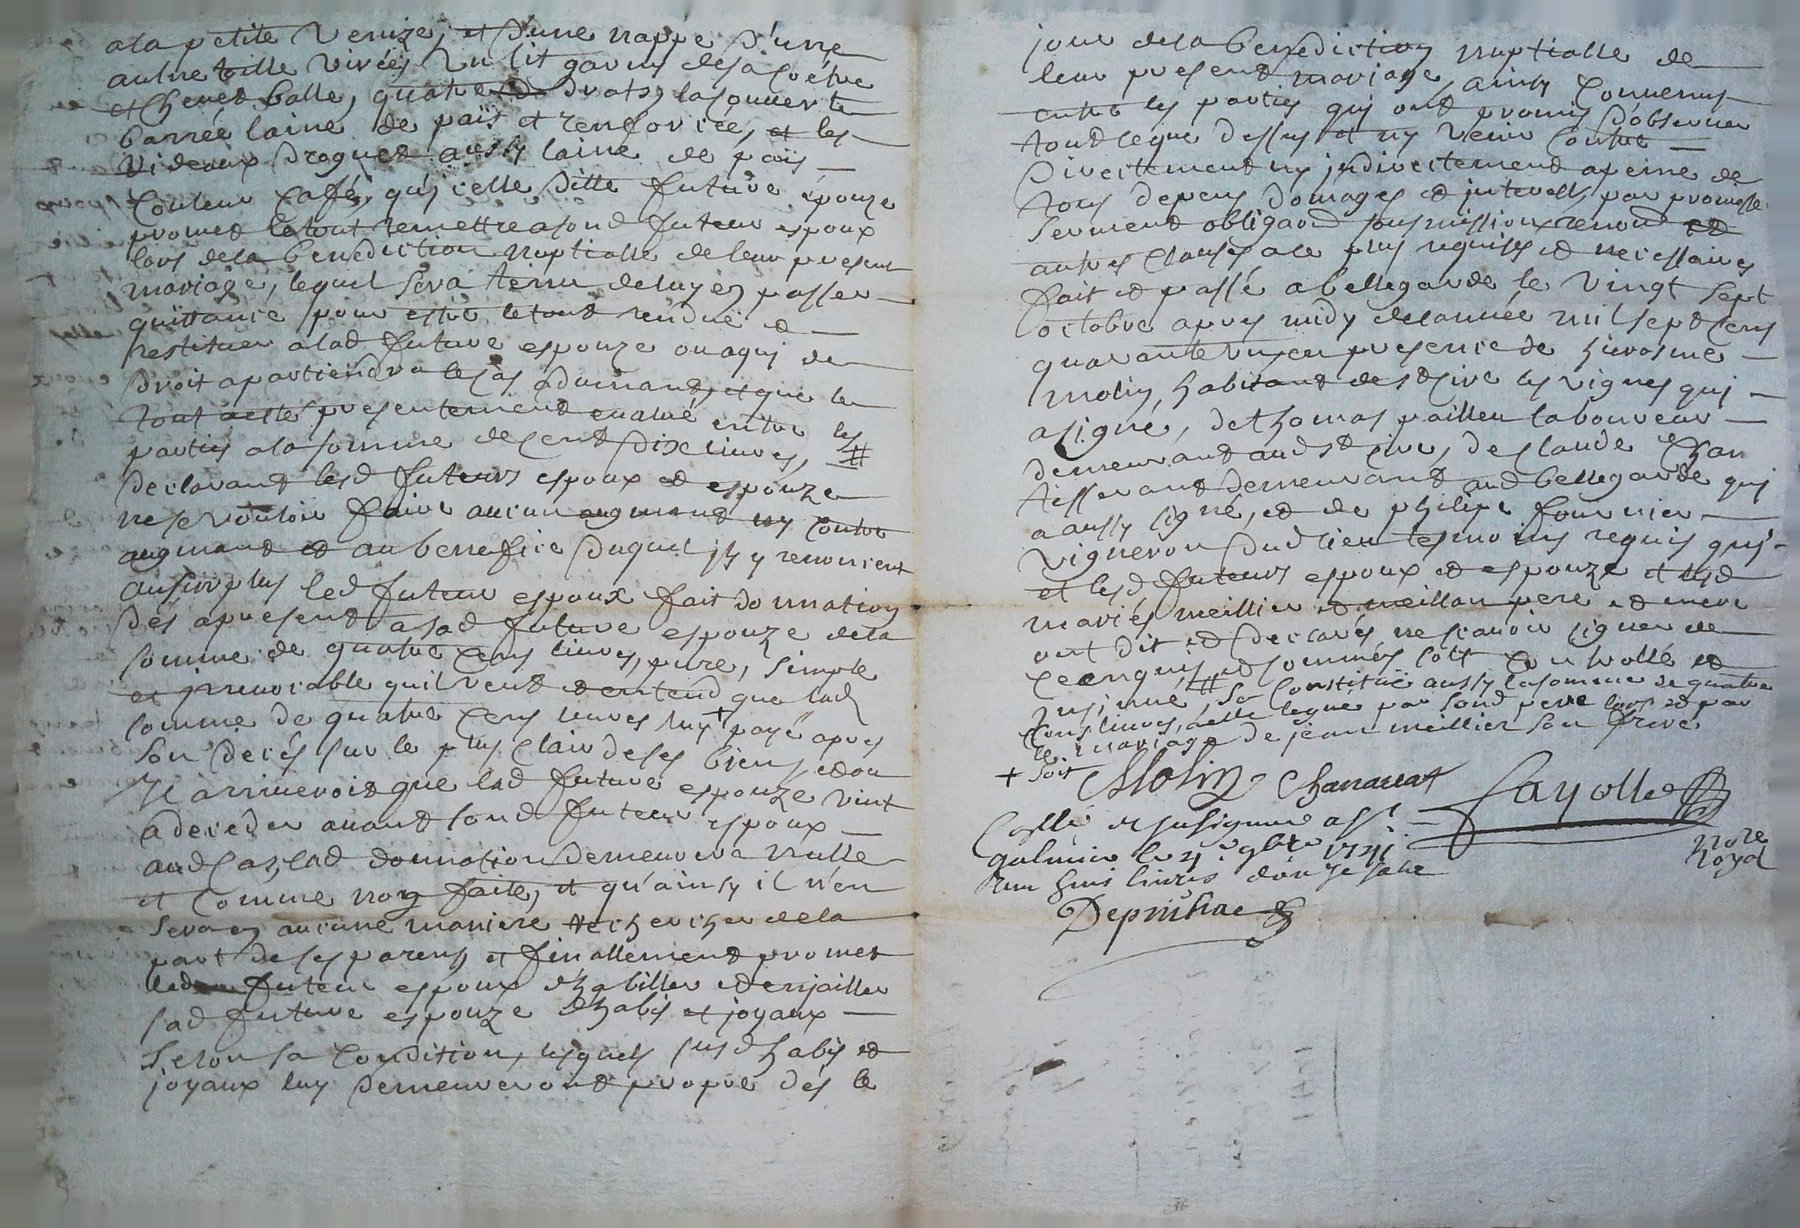 ala petite venize, et d'une nappe d'une
autre toille virées un lit garny desa coëtre
et chevet balle, quatre drats, la couverte
barrée laine de païs et renforcée, et les
rideaux droguet aussy laine de païs
couleur caffé, qu'icelle ditte future épouze
promet le tout remettre a sond futeur espoux
lors dela benediction nuptialle de leur present
mariage, lequel sera tenu deluy en passer
quittance pour estre le tout rendue et
restituer alad future espouze ou a qui de
droit apartiendra le cas advenant, et que le
tout a esté presentement evalué entre les
parties ala somme de cent dix livres, #
declarant lesd futeurs espoux et espouze
ne se vouloir faire aucun augmant ny contre
augmant et au benefice duquel ils y renoncent
au surplus led futeur espoux fait donnation
dés apresent a sad future espouze dela
somme de quatre cens livres, pure, simple
et irrevocable qu'il veut et entend que lad
somme de quatre cens livres luy + payé apres
son decés sur le plus clair de ses biens, et ou
il arriveroit que lad future espouze vint
a deceder avant sond futeur espoux
aud cas, lad donnation demeurera nulle
et comme non faite, et qu'ainsy il n'en
sera en aucune maniere rechercher dela
part de ses parens, et finallement promet
led futeur espoux d'habiller et enjoailler
sad future espouze d'habis et joyaux
selon sa condition, lesquels susd habis et
joyaux luy demeureront propre dés le
jour dela benediction nuptialle de
leur present mariage, ainsy convenus
entre les parties qui ont promis d'observer
tout ce que dessus et ny venir contre
directement ny indirectement a peine de
tous depens domages et interests par promesse
serment obligaon sousmission renon et
autres clauses a ce plus requises et necessaires
fait et passé a bellegarde le vingt sept
octobre apres midy de l'année mil sept cens
quarante un en presence de hierosme
molin, habitant de st cire les vignes qui
a signé, de thomas pailleu laboureur
demeurant aud st cire, de claude chan
tisserant demeurant aud bellegarde qui
a aussy signé, et de philipe fournier
vigneron dud lieu tesmoins requis qui
et lesd futeurs espoux et espouze et lesd
mariés meillier et meillan pere et mere
ont dit et declarés ne scavoir signer de
ce enquis et sommés soit controllé et
insinué # se constitue aussy la somme de quatre
cens livres, a elle legué par sond pere lors et par
le mariage de jean meillier son frere
+ soit
Molin Chanavat
Fayolle
no.re
royal
Collé et insinué a St
galmier le 9bre 1741
livres